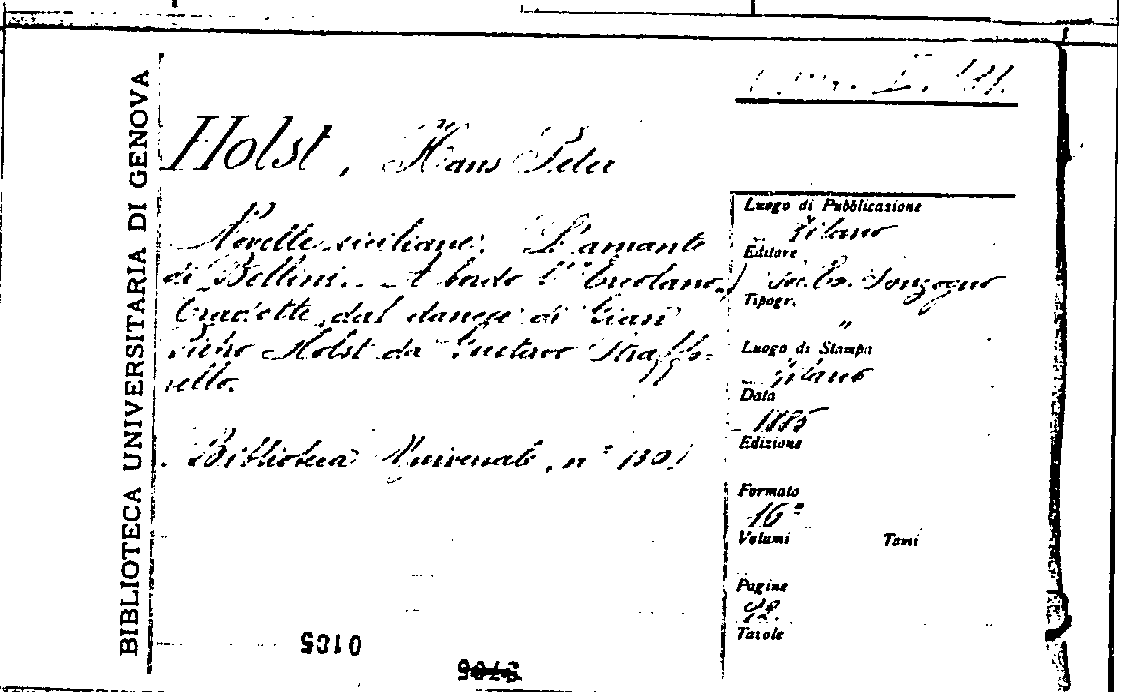 BIBLIOTECA UNIVERSITARIA DI GENOVA
Holst, Hans Peter
Novelle siciliane. L'amante
di Bellini. - A bordo l'"Ercolano"
tradotte dal danese di Gian
Pietro Holst da Gustavo Straffo-
rello.
Biblioteca Universale, n° 130
Luogo di Pubblicazione
Milano
Editore
Soc. Ed. Sonzogno
Tipogr.
"
Luogo di Stampa
Milano
Data
1885
Edizione
Formato
16°
Volumi Tomi
Pagine
98.
Tavole